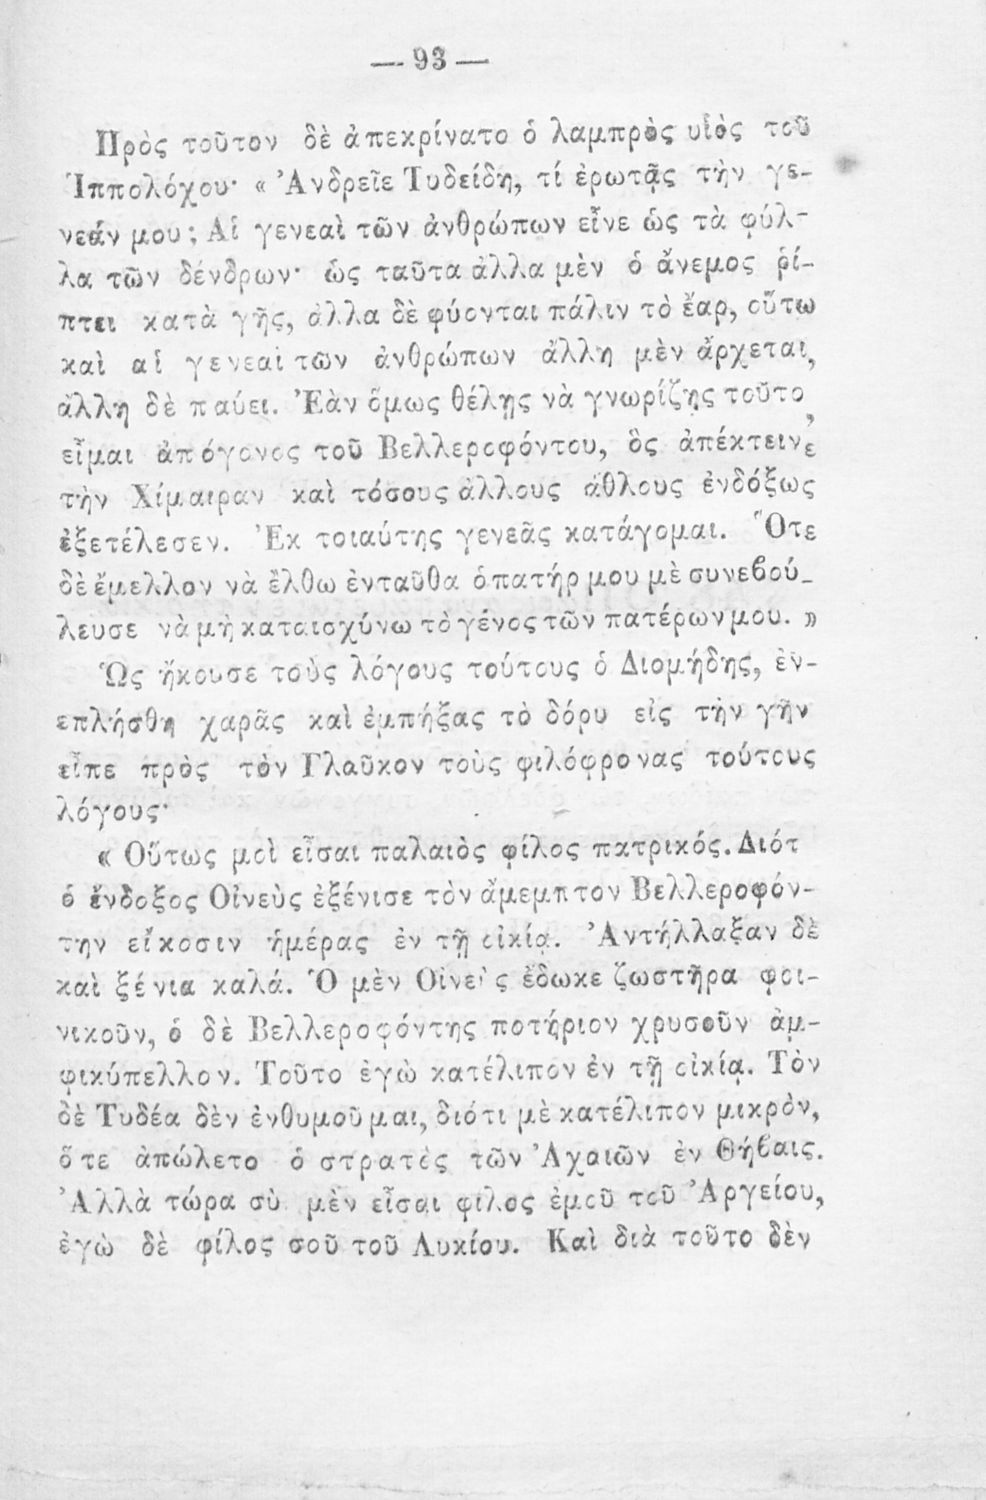 — 93 —
Πρὸς τοῦτον δὲ ἀπεκρίνατο ὁ λαμπρὸς υἱὸς τοῦ
Ἱππολόχου· « Ἀνδρεῖε Τυδείδη, τί ἐρωτᾷς τὴν γε-
νεάν μου ; Αἱ γενεαὶ τῶν ἀνθρώπων εἶνε ὡς τὰ φύλ-
λα τῶν δένδρων· ὡς ταῦτα ἄλλα μὲν ὁ ἄνεμος ῥί-
πτει κατὰ γῆς, ἄλλα δὲ φύονται πάλιν τὸ ἔαρ, οὕτω
καὶ αἱ γενεαὶ τῶν ἀνθρώπων ἄλλη μὲν ἄρχεται,
ἄλλη δὲ παύει. Ἐὰν ὅμως θέλῃς νὰ γνωρίζῃς τοῦτο,
εἶμαι ἀπόγονος τοῦ Βελλεροφόντου, ὃς ἀπέκτεινε
τὴν Χίμαιραν καὶ τόσους ἄλλους ἄθλους ἐνδόξως
ἐξετέλεσεν. Ἐκ τοιαύτης γενεᾶς κατάγομαι. Ὅτε
δὲ ἔμελλον νὰ ἔλθω ἐνταῦθα ὁ πατήρ μου μὲ συνεβού-
λευσε νὰ μὴ καταισχύνω τὸ γένος τῶν πατέρων μου. »
Ὡς ἤκουσε τοὺς λόγους τούτους ὁ Διομήδης, ἐν-
επλήσθη χαρᾶς καὶ ἐμπήξας τὸ δόρυ εἰς τὴν γῆν
εἶπε πρὸς τὸν Γλαῦκον τοὺς φιλόφρονας τούτους
λόγους·
« Οὕτως μοὶ εἶσαι παλαιὸς φίλος πατρικός. Διότ
ὁ ἔνδοξος Οἰνεὺς ἐξένισε τὸν ἄμεμπτον Βελλεροφόν-
την εἴκοσιν ἡμέρας ἐν τῇ οἰκίᾳ. Ἀντήλλαξαν δὲ
καὶ ξένια καλά. Ὁ μὲν Οἰνεὺς ἔδωκε ζωστῆρα φοι-
νικοῦν, ὁ δὲ Βελλεροφόντης ποτήριον χρυσοῦν ἀμ-
φικύπελλον. Τοῦτο ἐγὼ κατέλιπον ἐν τῇ οἰκίᾳ. Τὸν
δὲ Τυδέα δὲν ἐνθυμοῦμαι, διότι μὲ κατέλιπον μικρόν,
ὅτε ἀπώλετο ὁ στρατὸς τῶν Ἀχαιῶν ἐν Θήβαις.
Ἀλλὰ τώρα σὺ μὲν εἶσαι φίλος ἐμοῦ τοῦ Ἀργείου,
ἐγὼ δὲ φίλος σοῦ τοῦ Λυκίου. Καὶ διὰ τοῦτο δὲν